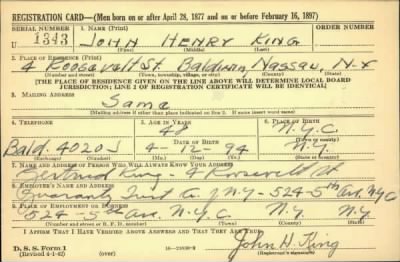 REGISTRATION CARD—(Men born on or after April 28, 1877 and on or before February 16, 1897)
SERIAL NUMBER 1. NAME (Print)
U 1343 JOHN HENRY KING
(First) (Middle) (Last)
2. PLACE OF RESIDENCE (Print)
4 Roosevelt St. Baldwin, Nassau, N-Y
(Number and street) (Town, township, village, or city) (County) (State)
[THE PLACE OF RESIDENCE GIVEN ON THE LINE ABOVE WILL DETERMINE LOCAL BOARD
JURISDICTION; LINE 2 OF REGISTRATION CERTIFICATE WILL BE IDENTICAL]
3. MAILING ADDRESS
Same
[Mailing address if other than place indicated on line 2. If same insert word same]
4. TELEPHONE 5. AGE IN YEARS 6. PLACE OF BIRTH
48 N.Y.C.
DATE OF BIRTH (Town or county)
Bald. 4020J 4-12-94 N.Y.
(Exchange) (Number) (Mo.) (Day) (Yr.) (State or country)
7. NAME AND ADDRESS OF PERSON WHO WILL ALWAYS KNOW YOUR ADDRESS
Gertrude King - 4 Roosevelt St
8. EMPLOYER'S NAME AND ADDRESS
Guaranty Trust Co. of N.Y - 524-5th Ave. NYC
9. PLACE OF EMPLOYMENT OR BUSINESS
524-5th Ave. N.Y.C. N.Y. N.Y.
(Number and street or R. F. D. number) (Town) (County) (State)
I AFFIRM THAT I HAVE VERIFIED ABOVE ANSWERS AND THAT THEY ARE TRUE.
D. S. S. Form 1
(Revised 4-1-42) (over)
John H. King
(Registrant's signature)